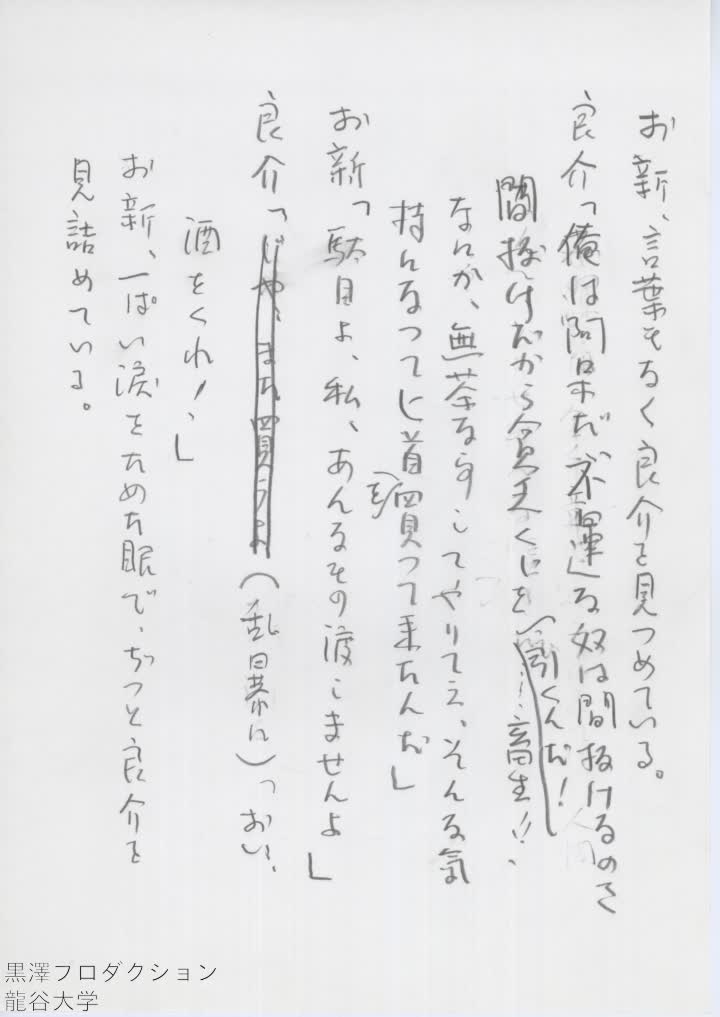 お新、言葉もなく良介を見つめている。
良介「俺は阿呆だ不運な奴は間抜けなのさ
間抜けだから貧乏くじを引くんだ！畜生！！、
なにか、無茶な事してやりてえ、そんな気
持になつてヒ首を買つて来たんだ」
お新「駄目よ、私、あんなもの渡しませんよ」
良介「じや、また買うよ（乱暴に）っおい、
酒をくれ！、」
お新、一ぱい涙をためた眼で、ぢつと良介を
見詰めている。
黒澤プロダクション
龍谷大学